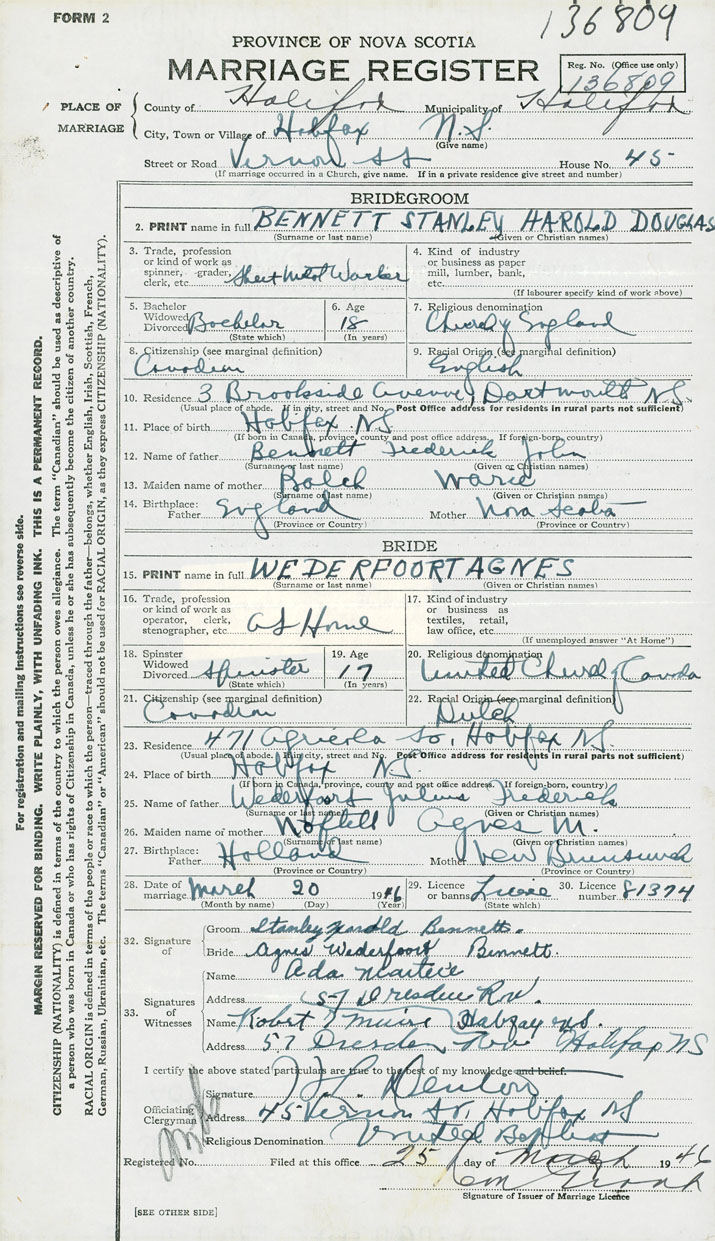 FORM 2
136809
PROVINCE OF NOVA SCOTIA
MARRIAGE REGISTER
Reg. No. (Office use only)
136809
PLACE OF MARRIAGE
County of Halifax Municipality of Halifax
City, Town or Village of Halifax N.S.
(Give name)
Street or Road Vernon St House No. 45
(If marriage occurred in a Church, give name. If in a private residence give street and number)
BRIDEGROOM
2. PRINT name in full BENNETT STANLEY HAROLD DOUGLAS
(Surname or last name) (Given or Christian names)
3. Trade, profession or kind of work as spinner, grader, clerk, etc. Sheet Metal Worker
4. Kind of industry or business as paper mill, lumber, bank, etc.
(If labourer specify kind of work above)
5. Bachelor Widowed Divorced Bachelor
(State which)
6. Age 18
(In years)
7. Religious denomination Church of England
8. Citizenship (see marginal definition) Canadian
9. Racial Origin (see marginal definition) English
10. Residence 3 Brookside Avenue, Dartmouth NS
(Usual place of abode. If in city, street and No. Post Office address for residents in rural parts not sufficient)
11. Place of birth Halifax NS
(If born in Canada, province, county and post office address. If foreign-born, country)
12. Name of father Bennett Frederick John
(Surname or last name) (Given or Christian names)
13. Maiden name of mother Balch Marie
(Surname or last name) (Given or Christian names)
14. Birthplace: Father England Mother Nova Scotia
(Province or Country) (Province or Country)
BRIDE
15. PRINT name in full WEDERFOORT AGNES
(Surname or last name) (Given or Christian names)
16. Trade, profession or kind of work as operator, clerk, stenographer, etc. At Home
17. Kind of industry or business as textiles, retail, law office, etc.
(If unemployed answer "At Home")
18. Spinster Widowed Divorced Spinster
(State which)
19. Age 17
(In years)
20. Religious denomination United Church of Canada
21. Citizenship (see marginal definition) Canadian
22. Racial Origin (see marginal definition) Dutch
23. Residence 471 Agricola St, Halifax NS
(Usual place of abode. If in city, street and No. Post Office address for residents in rural parts not sufficient)
24. Place of birth Halifax NS.
(If born in Canada, province, county and post office address. If foreign-born, country)
25. Name of father Wederfoort Julius Frederick
(Surname or last name) (Given or Christian names)
26. Maiden name of mother Agnes M.
(Surname or last name) (Given or Christian names)
27. Birthplace: Father Holland Mother New Brunswick
(Province or Country) (Province or Country)
28. Date of marriage March 20 1946
(Month by name) (Day) (Year)
29. Licence or banns License
(State which)
30. Licence number 81374
32. Signature of
Groom Stanley Harold Bennett.
Bride Agnes Wederfoort Bennett.
33. Signatures of Witnesses
Name Ada
Address 57 Dresden Row.
Name Robert Halifax N.S.
Address 57 Dresden Row Halifax NS
I certify the above stated particulars are true to the best of my knowledge and belief.
Officiating Clergyman
Signature Denton
Address 45 Vernon St, Halifax NS
Religious Denomination United Baptist
Registered No. Filed at this office 25 day of March 1946
Signature of Issuer of Marriage Licence
[SEE OTHER SIDE]
For registration and mailing instructions see reverse side.
MARGIN RESERVED FOR BINDING. WRITE PLAINLY, WITH UNFADING INK. THIS IS A PERMANENT RECORD.
CITIZENSHIP (NATIONALITY) is defined in terms of the country to which the person owes allegiance. The term "Canadian" should be used as descriptive of
a person who was born in Canada or who has rights of Citizenship in Canada, unless he or she has subsequently become the citizen of another country.
RACIAL ORIGIN is defined in terms of the people or race to which the person—traced through the father—belongs, whether English, Irish, Scottish, French,
German, Russian, Ukrainian, etc. The terms "Canadian" or "American" should not be used for RACIAL ORIGIN, as they express CITIZENSHIP (NATIONALITY).